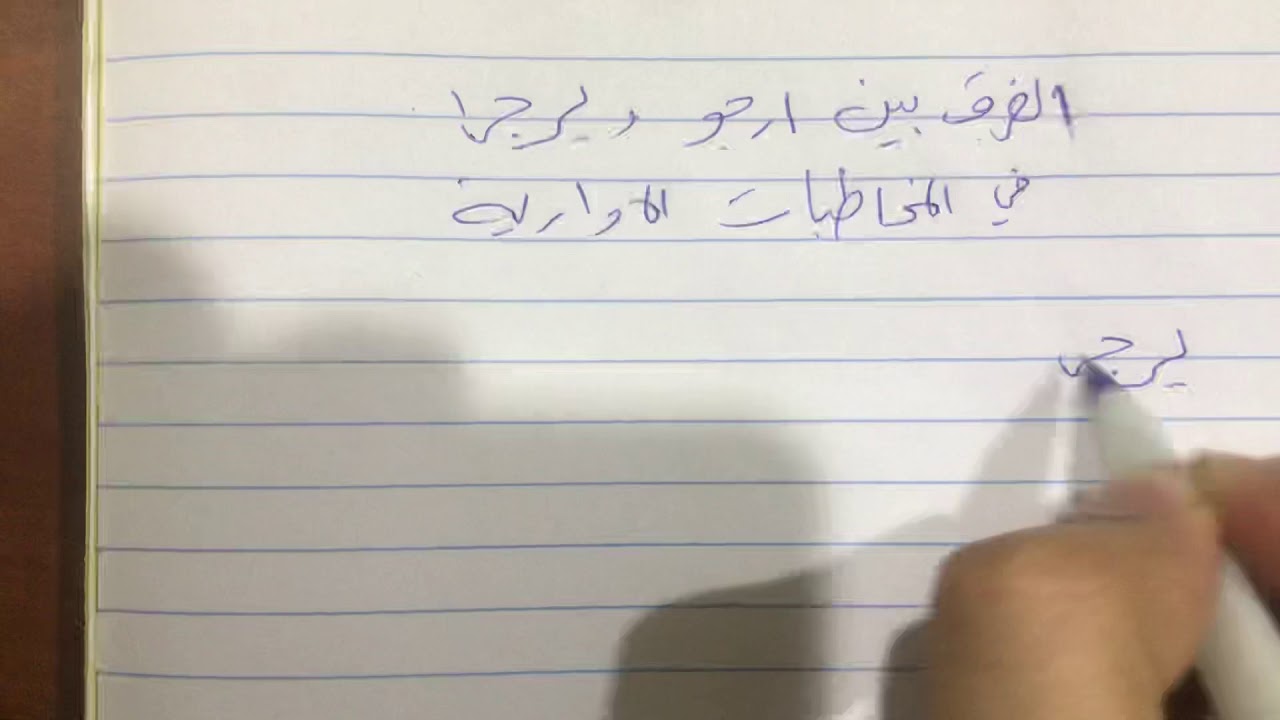 الفرق بين ارجو و يرجى
في المخاطبات الادارية
يرجى